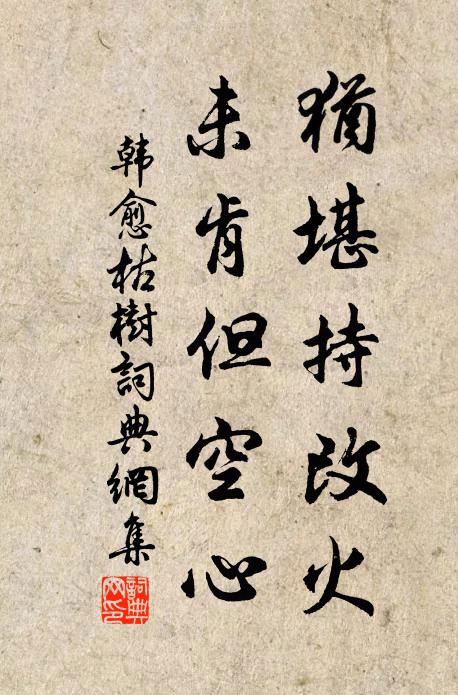 猶堪持改火
未肯但空心
韩愈枯樹詞典網集
詞典网印